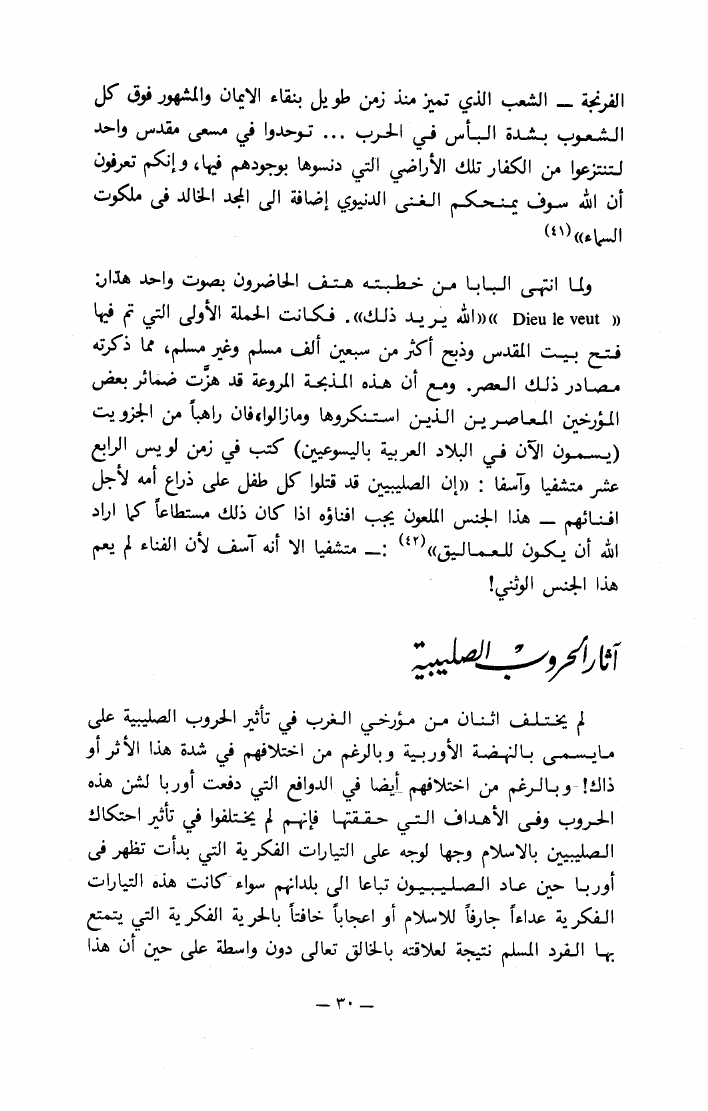 الفرنجة — الشعب الذي تميز منذ زمن طويل بنقاء الايمان والمشهور فوق كل
الشعوب بشدة البأس في الحرب ... توحدوا في مسعى مقدس واحد
لتنتزعوا من الكفار تلك الأراضي التي دنسوها بوجودهم فيها، وإنكم تعرفون
أن الله سوف يمنحكم الغنى الدنيوي إضافة الى المجد الخالد فى ملكوت
السماء»(٤١)
ولما انتهى البابا من خطبته هتف الحاضرون بصوت واحد هدّار:
« Dieu le veut »«الله يريد ذلك». فكانت الحملة الأولى التي تم فيها
فتح بيت المقدس وذبح أكثر من سبعين ألف مسلم وغير مسلم، مما ذكرته
مصادر ذلك العصر. ومع أن هذه المذبحة المروعة قد هزّت ضمائر بعض
المؤرخين المعاصرين الذين استنكروها ومازالوا،فان راهباً من الجزويت
(يسمون الآن في البلاد العربية باليسوعيين) كتب في زمن لويس الرابع
عشر متشفيا وآسفا : «إن الصليبيين قد قتلوا كل طفل على ذراع أمه لأجل
افنائهم — هذا الجنس الملعون يجب افناؤه اذا كان ذلك مستطاعاً كما اراد
الله أن يكون للعماليق»(٤٢) :— متشفيا الا أنه آسف لأن الفناء لم يعم
هذا الجنس الوثني!
آثار الحروب الصليبية
لم يختلف اثنان من مؤرخي الغرب في تأثير الحروب الصليبية على
مايسمى بالنهضة الأوربية وبالرغم من اختلافهم في شدة هذا الأثر أو
ذاك! وبالرغم من اختلافهم أيضا في الدوافع التي دفعت أوربا لشن هذه
الحروب وفى الأهداف التي حققتها فإنهم لم يختلفوا في تأثير احتكاك
الصليبيين بالاسلام وجها لوجه على التيارات الفكرية التي بدأت تظهر فى
أوربا حين عاد الصليبيون تباعا الى بلدانهم سواء كانت هذه التيارات
الفكرية عداءاً جارفاً للاسلام أو اعجاباً خافتاً بالحرية الفكرية التي يتمتع
بها الفرد المسلم نتيجة لعلاقته بالخالق تعالى دون واسطة على حين أن هذا
— ٣٠ —